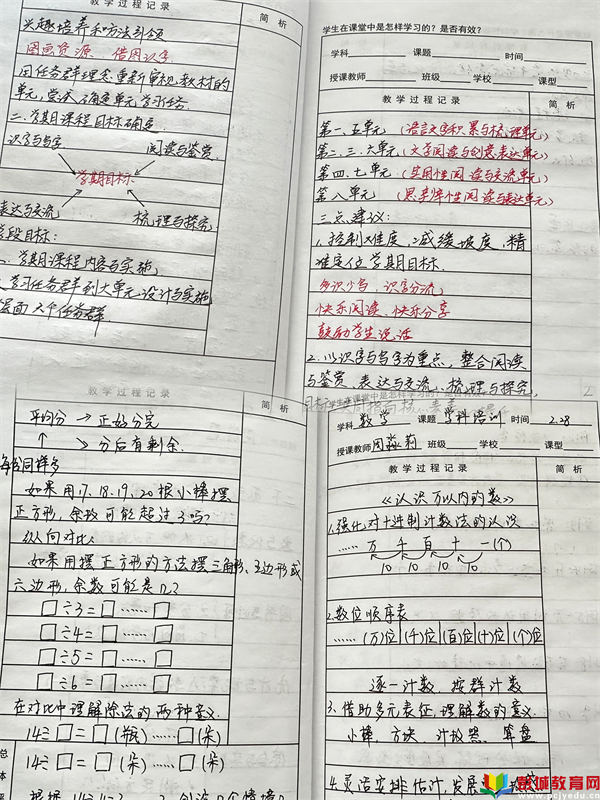 教学过程记录
简析
兴趣培养和方法引领
图画资源 借图识字
用任务群理念重新审视教材的
单元,尝试确定单元学习任务.
二.学期课程目标确定
识字与写字 阅读与鉴赏
学期目标
表达与交流 梳理与探究
学段目标:
、学期课程内容与实施
学习任务群到大单元设计与实施
层面 六个任务群
学生在课堂中是怎样学习的?是否有效?
学科 课题 时间
授课教师 班级 学校 课型
教学过程记录
简析
第一、五单元(语言文字积累与梳理单元)
第二、三、六单元(文学阅读与创意表达单元)
第四、七单元(实用性阅读与交流单元)
第八单元(思辨性阅读与表达单元)
三点建议:
1.控制难度、减缓坡度,精
准定位学期目标.
多识少写、识写分流,
快乐阅读、快乐分享
鼓励学生说话
2.以识字与写字为重点,整合阅读
与鉴赏、表达与交流、梳理与探究,
教学过程记录
简析
平均分 → 正好分完
↑ > 分后有剩余.
每份同样多
如果用17、18、19、20根小棒摆
正方形,余数可能超过3吗?
纵向对比:
如果用摆正方形的方法摆三角形、五边形或
六边形,余数可能是几?
□÷3=□……□
□÷4=□……□
□÷5=□……□
□÷6=□……□
在对比中理解除法的两种意义.
14÷□=□(瓶)……□(朵)
14÷□=□(朵)……□(朵)
总体
学生在课堂中是怎样学习的?是否有效?
学科 数学 课题 学科培训 时间 2.28
授课教师 周淼莉 班级 学校 课型
教学过程记录
简析
《认识万以内的数》
1.强化对十进制计数法的认识
…… 万 千 百 十 一(个)
10 10 10 10
2.数位顺序表
……(万)位|(千)位|(百)位|(十)位|(个)位
逐一计数、按群计数
3.借助多元表征,理解数的意义.
小棒 方块 计数器 算盘
4.灵活安排估计,发展
教育网
www.pcjyedu.cn